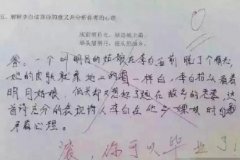 五、解释李白这首诗的意义并分析作者的心理
床前明月光,疑是地上霜。
举头望明月,低头思故乡。
答:一个叫明月的姑娘在李白面前脱了个精光,
她的皮肤就象地上的霜一样白,李白抬头看看
明月姑娘,低头却又想起了现在故乡的老婆,这
首诗充分的表现了李白在他
矛盾心理。
滚,你可以毕业了!